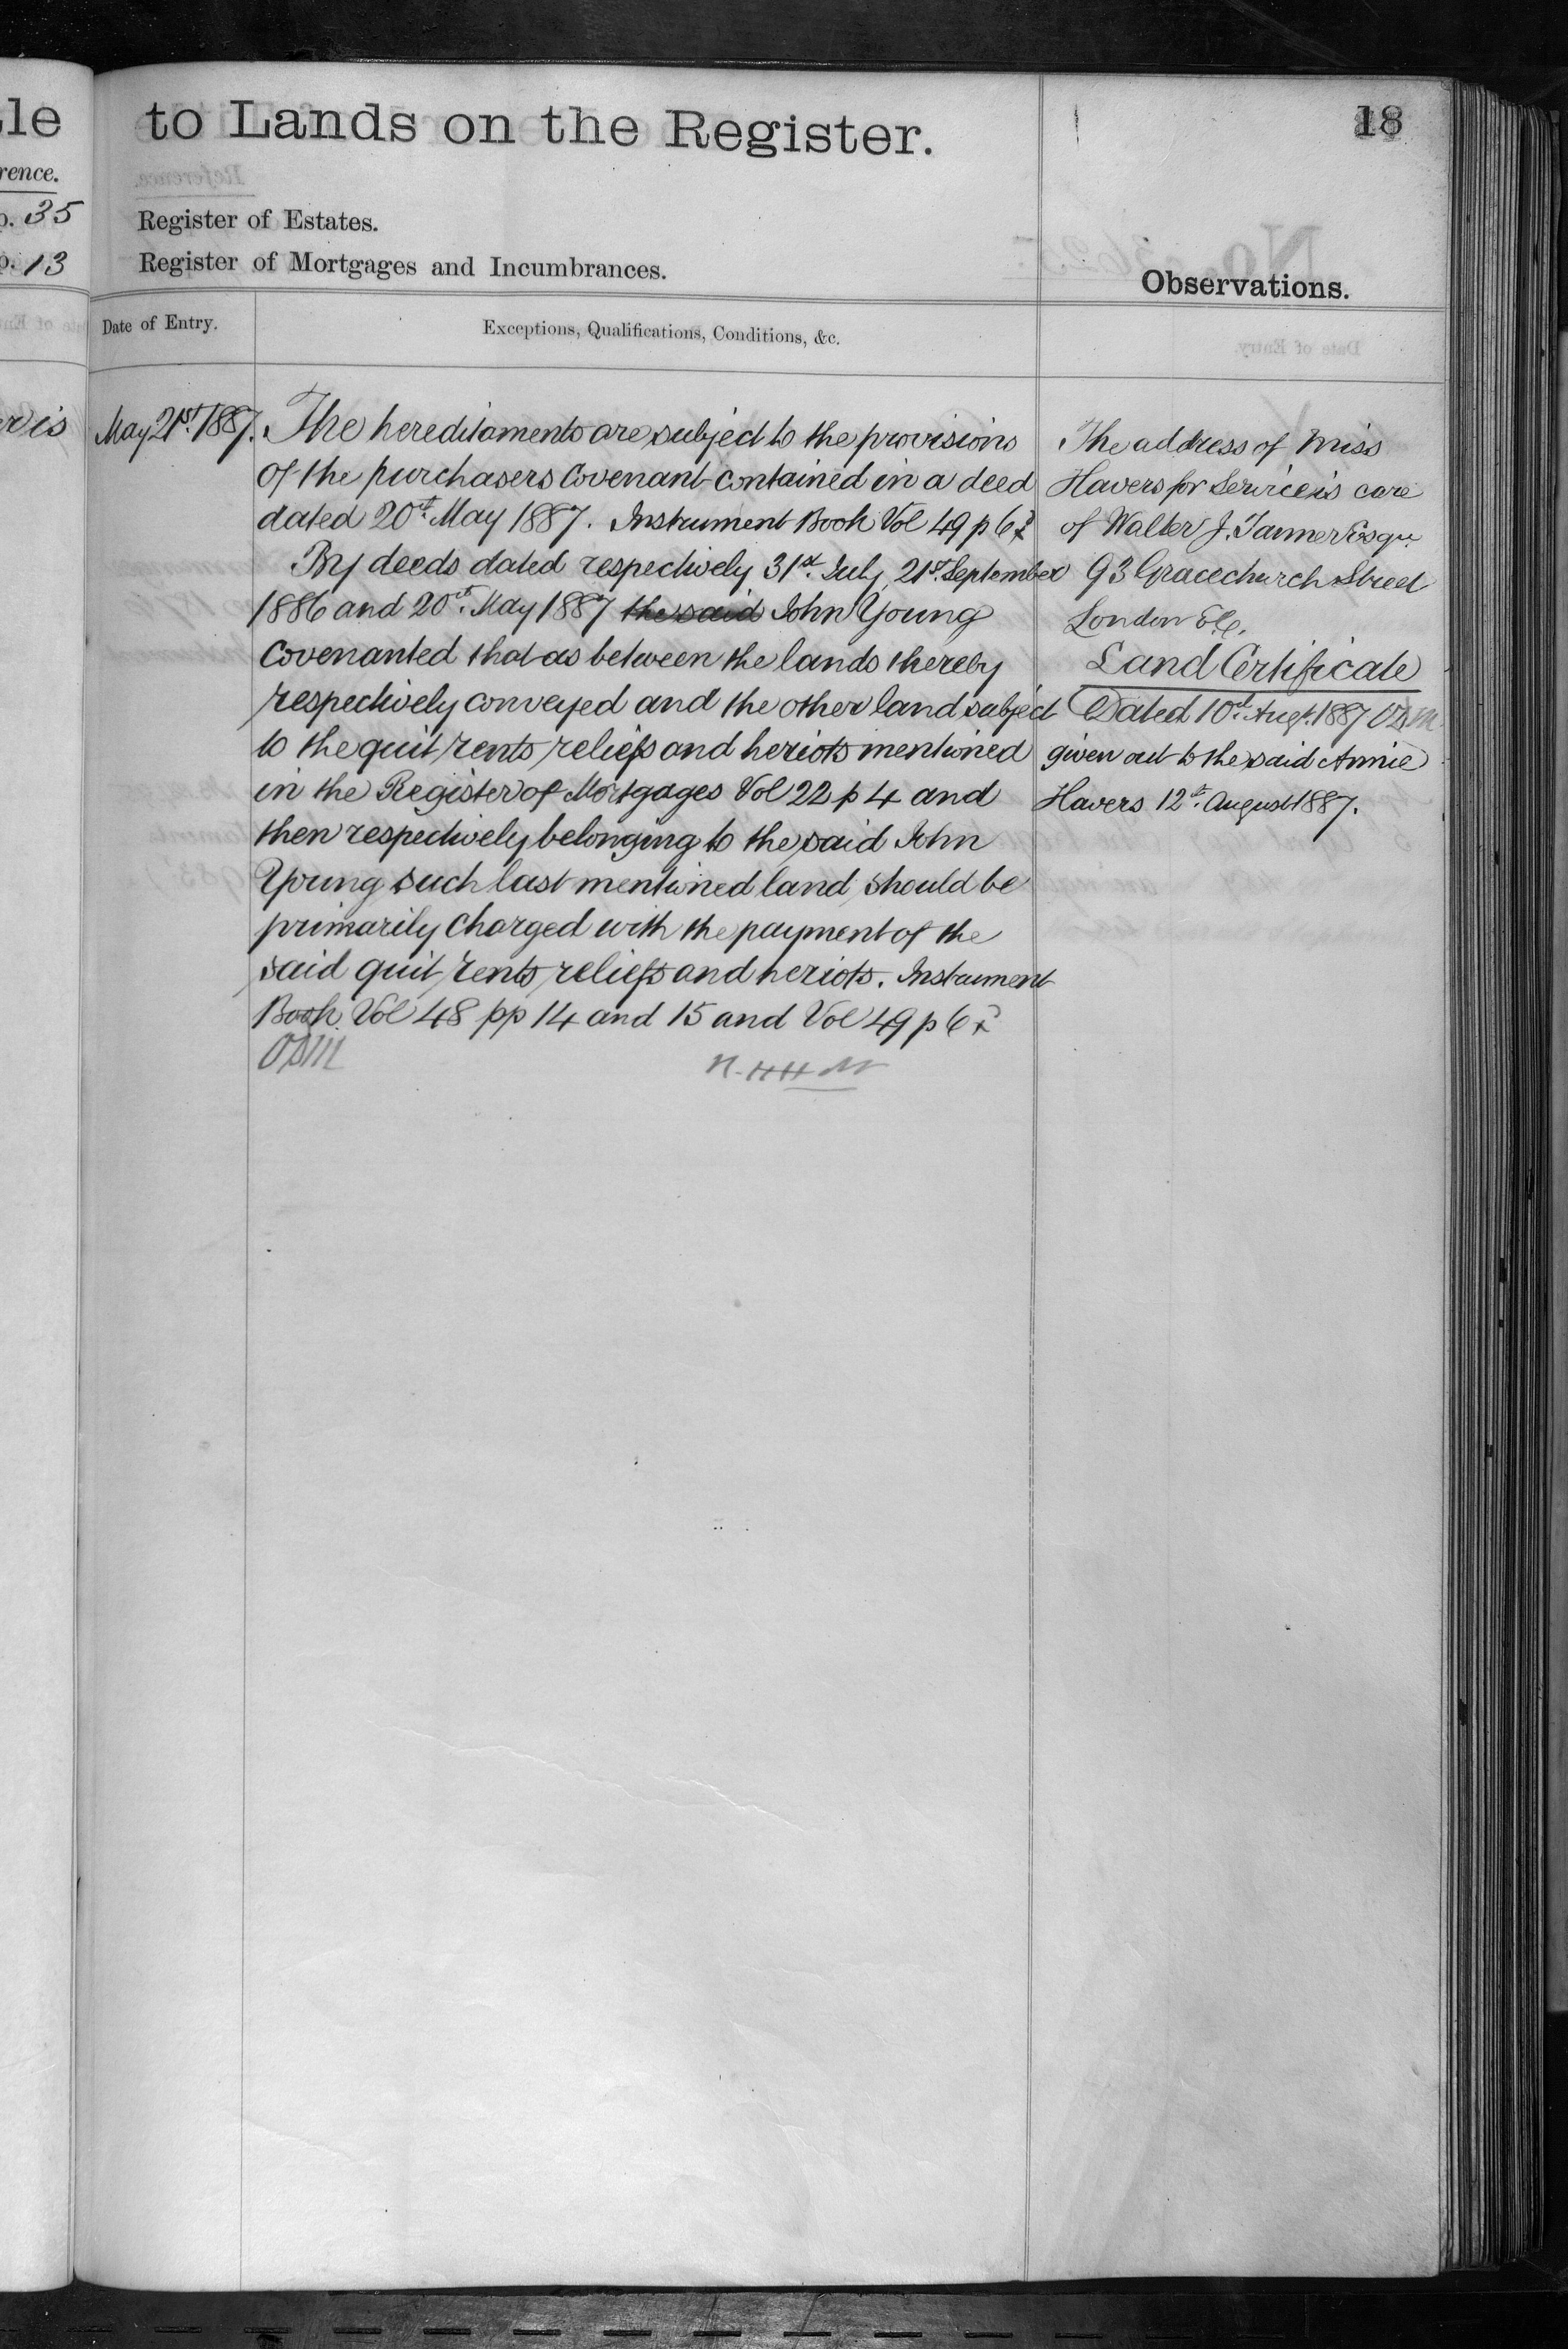 le
rence.
p. 35
p. 13
to Lands on the Register.
18
Register of Estates.
Register of Mortgages and Incumbrances.
Observations.
Date of Entry.
Exceptions, Qualifications, Conditions, &c.
May 21st 1887.
The hereditaments are subject to the provisions
of the purchasers Covenant contained in a deed
dated 20th May 1887. Instrument Book Vol 49 p 6
By deeds dated respectively 31st July, 21st September
1886 and 20th May 1887 the said John Young
Covenanted that as between the lands thereby
respectively conveyed and the other land subject
to the quit rents reliefs and heriots mentioned
in the Register of Mortgages Vol 22 p 4 and
then respectively belonging to the said John
Young such last mentioned land should be
primarily charged with the payment of the
said quit rents reliefs and heriots. Instrument
Book Vol 48 pp 14 and 15 and Vol 49 p 6
The address of Miss
Havers for Service is care
of Walter J. Tanner Esqre.
93 Gracechurch Street
London E.C.
Land Certificate
Dated 10th Augt. 1887
given out to the said Annie
Havers 12th August 1887.